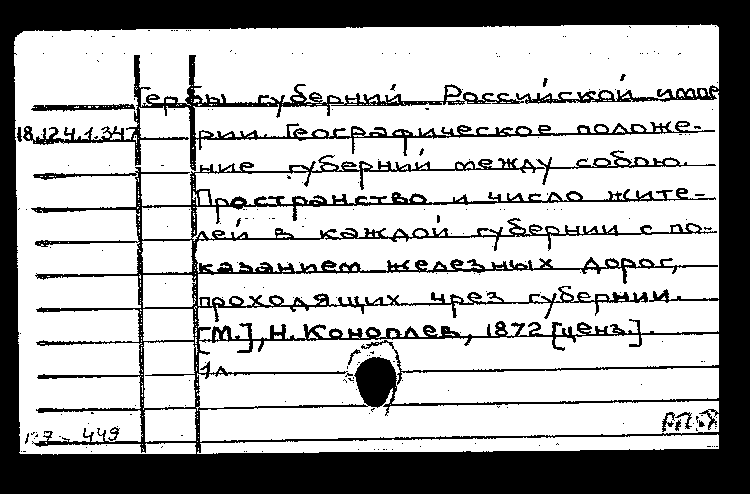 Гербы губерний Российской импе
18.124.1.347 рии. Географическое положе-
ние губерний между собою.
Пространство и число жите-
лей в каждой губернии с по-
казанием железных дорог,
проходящих чрез губернии.
[М.], Н. Коноплев, 1872 [ценз.].
1 л.
137 - 449